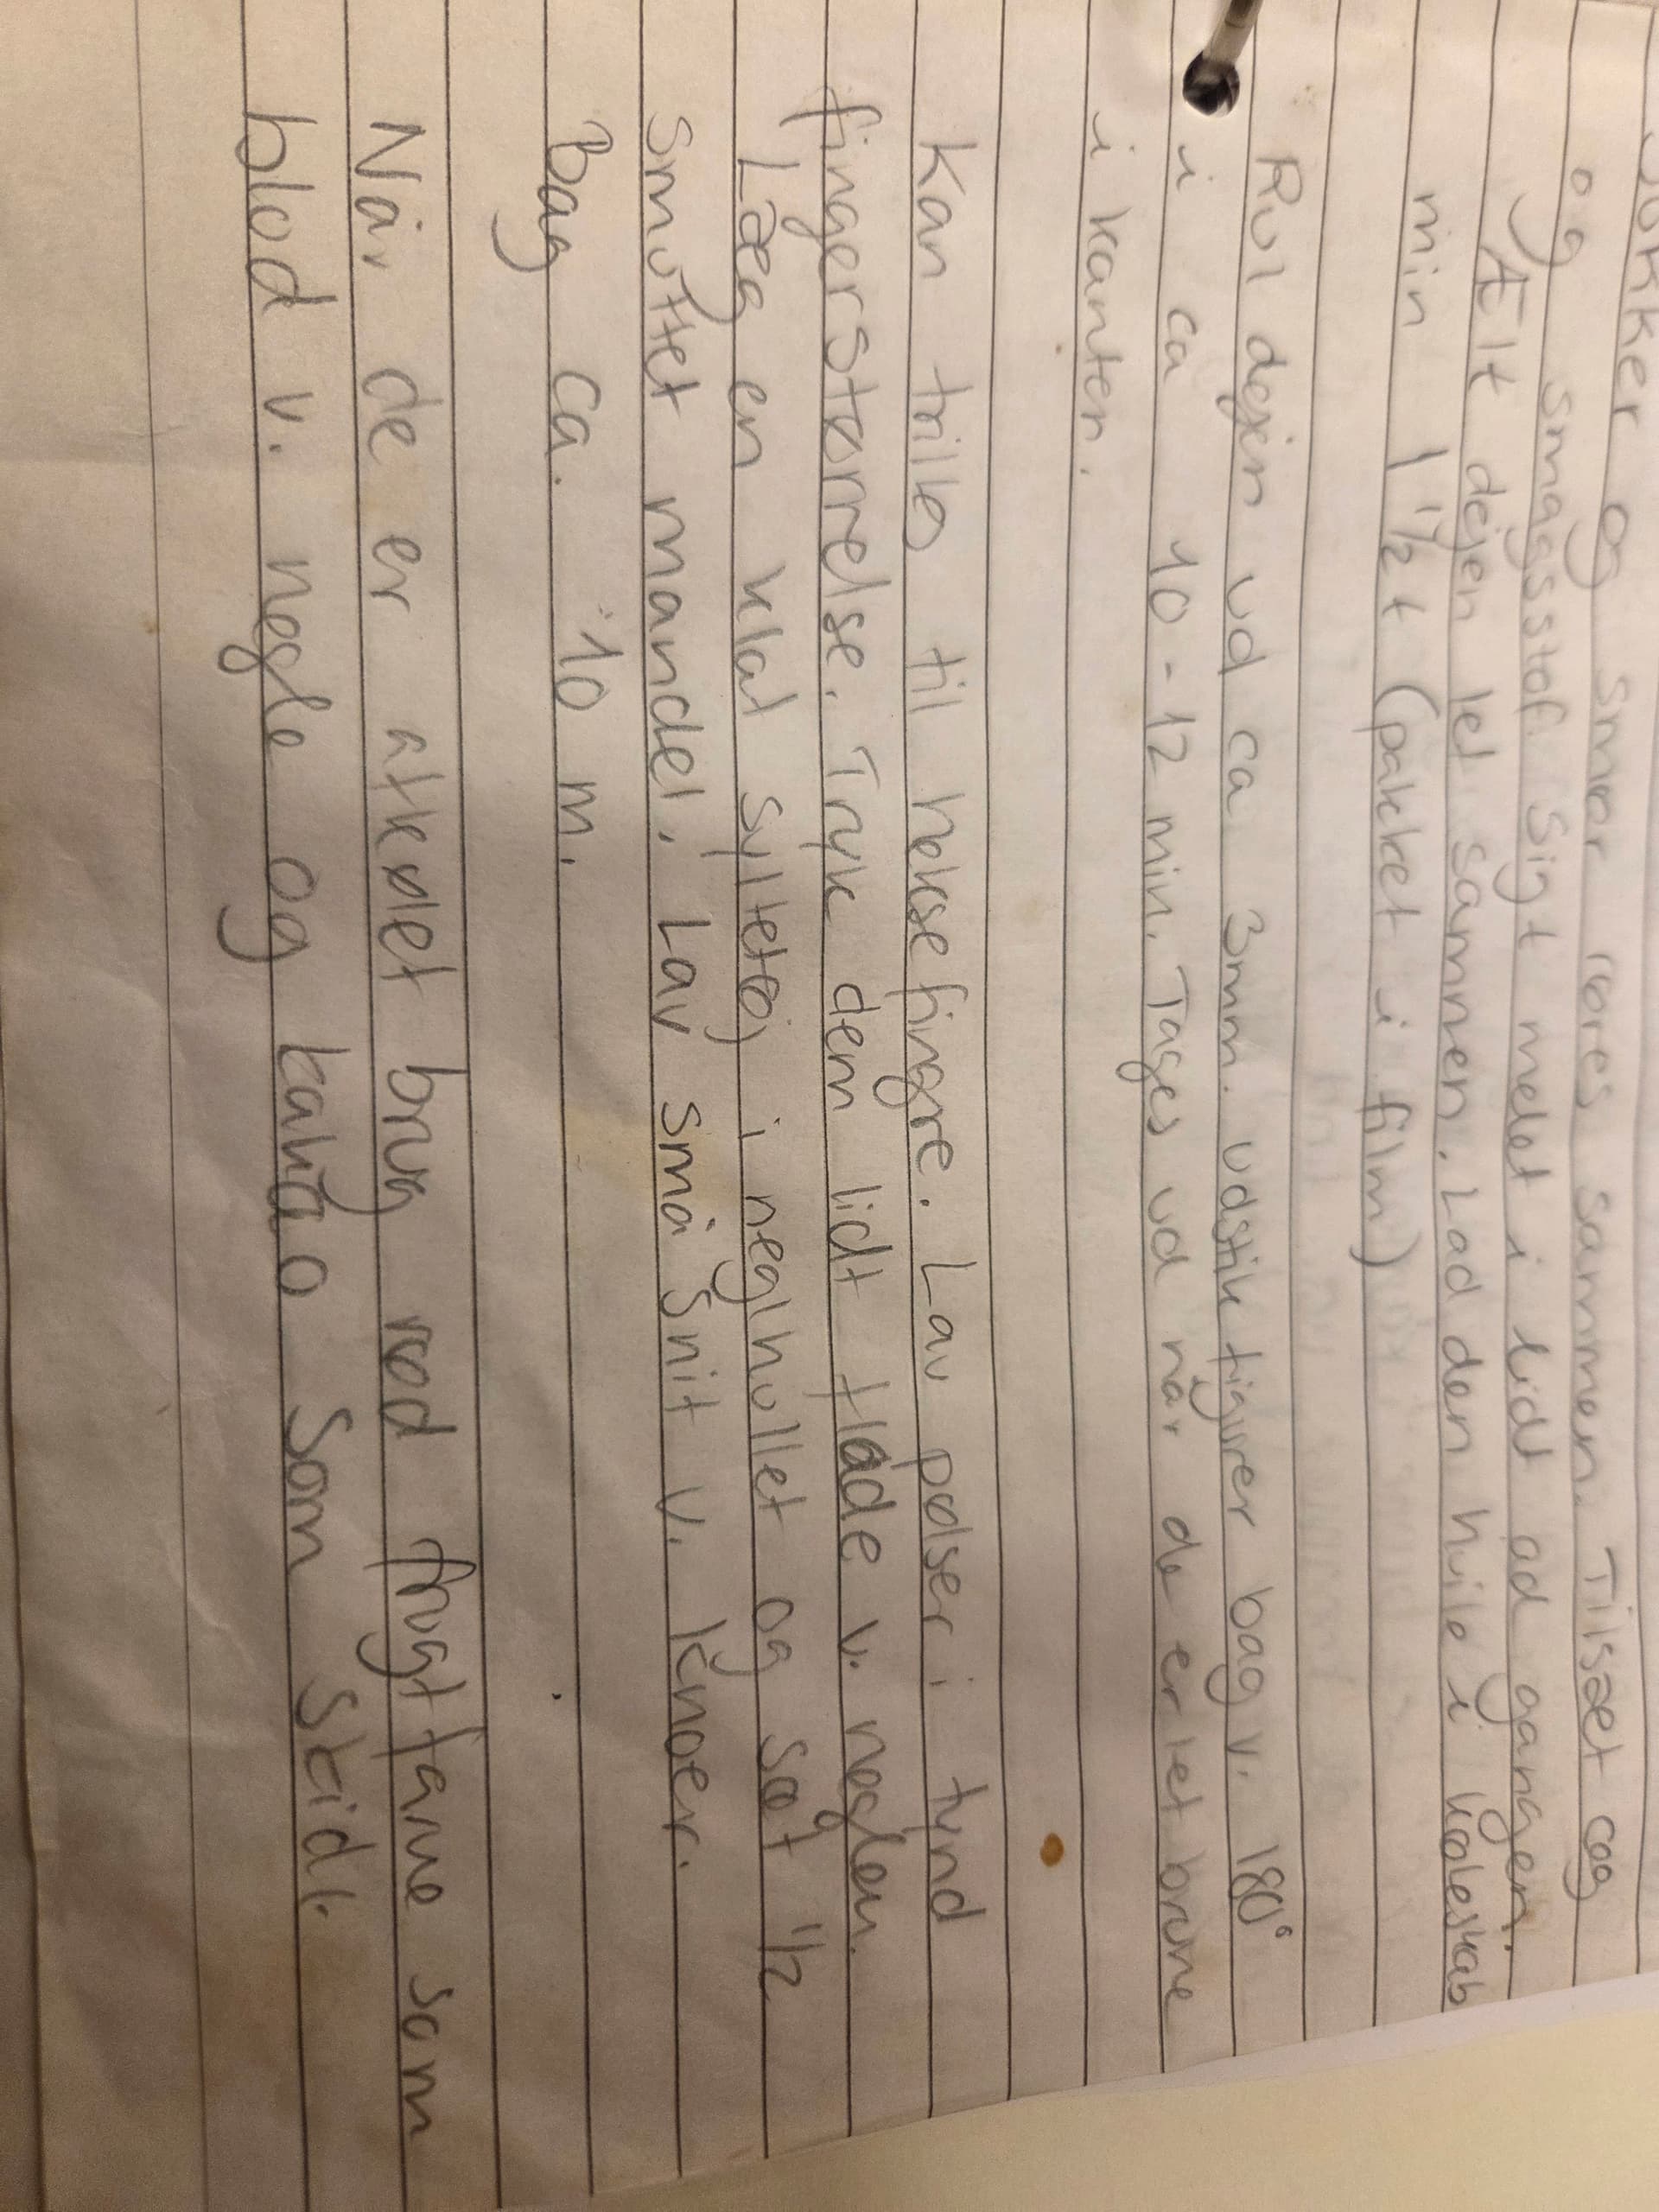 Sukker og smør røres sammen. Tilsæt æg
og smagsstof. Sigt melet i lidt ad gangen.
Ælt dejen let sammen. Lad den hvile i køleskab
min 1 1/2 t (pakket i film)
Rul dejen ud ca 3mm. udstik figurer bag v. 180°
i ca 10-12 min. Tages ud når de er let brune
i kanten.
Kan trilles til heksefingre. Lav pølser i tynd
fingerstørrelse. Tryk dem lidt flade v. neglen.
Læg en klat syltetøj i neglhullet og sæt 1/2
smuttet mandel. Lav små snit v. knoer.
Bag ca. 10 m.
Når de er afkølet brug rød frugtfarve som
blod v. negle og kakao som skidt.